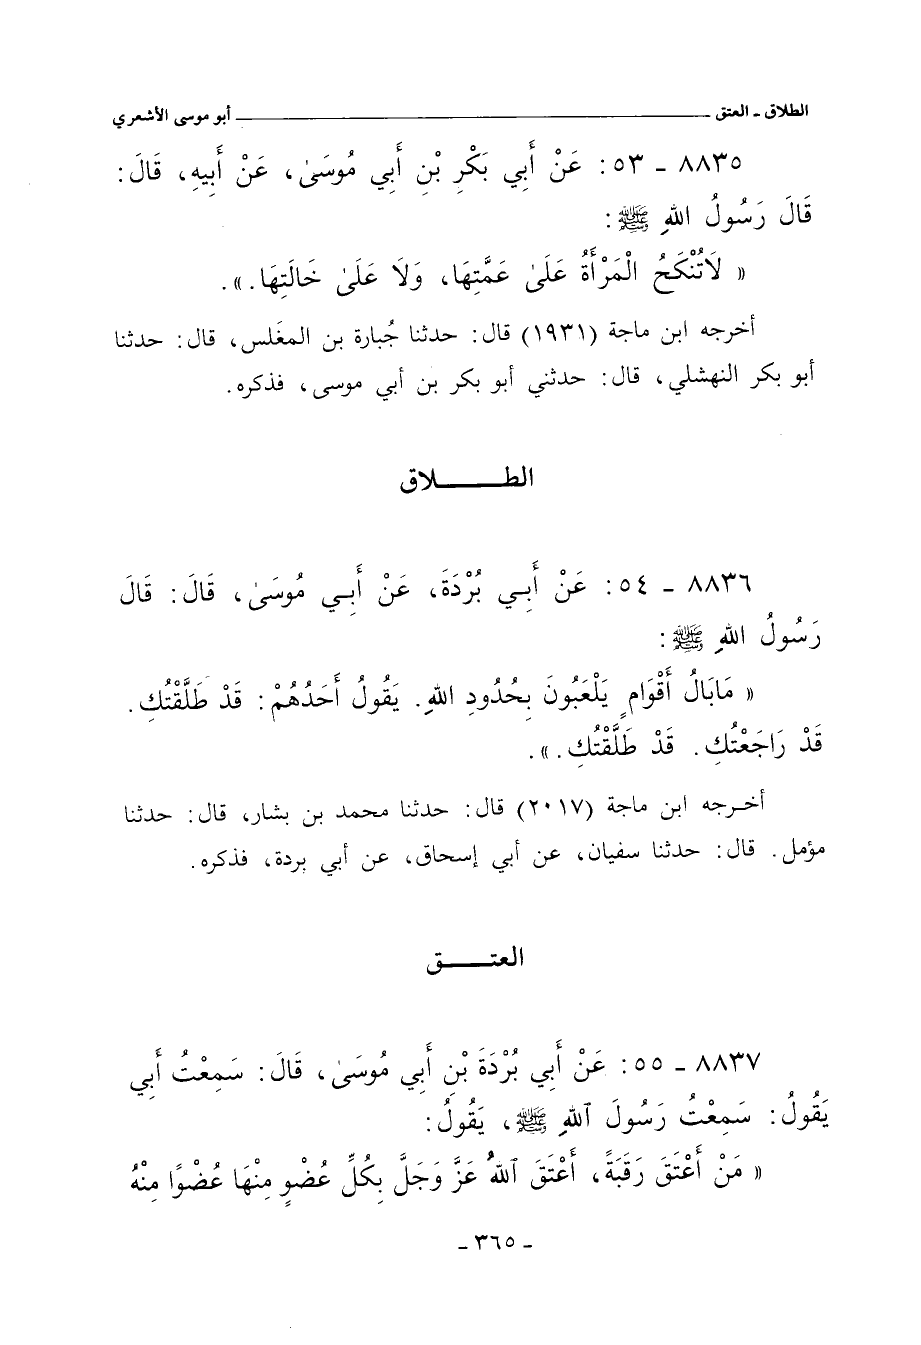 الطلاق - العتق ـــــــــــــ أبو موسى الأشعري
٨٨٣٥ - ٥٣ : عَنْ أَبِي بَكْرِ بْنِ أَبِي مُوسَىٰ، عَنْ أَبِيهِ، قَالَ:
قَالَ رَسُولُ اللهِ ﷺ:
« لَاتُنْكَحُ الْمَرْأَةُ عَلَىٰ عَمَّتِهَا، وَلَا عَلَىٰ خَالَتِهَا. ».
أخرجه ابن ماجة (١٩٣١) قال: حدثنا جُبارة بن المغَلس، قال: حدثنا
أبو بكر النهشلي، قال: حدثني أبو بكر بن أبي موسى، فذكره.
الطـــــــلاق
٨٨٣٦ - ٥٤ : عَنْ أَبِـي بُرْدَةَ، عَنْ أَبِـي مُوسَىٰ، قَالَ: قَالَ
رَسُولُ اللهِ ﷺ:
« مَابَالُ أَقْوَامٍ يَلْعَبُونَ بِحُدُودِ اللهِ. يَقُولُ أَحَدُهُمْ: قَدْ طَلَّقْتُكِ.
قَدْ رَاجَعْتُكِ. قَدْ طَلَّقْتُكِ. ».
أخـرجه ابن ماجة (٢٠١٧) قال: حدثنا محمد بن بشار، قال: حدثنا
مؤمل. قال: حدثنا سفيان، عن أبي إسحاق، عن أبي بردة، فذكره.
العتـــــق
٨٨٣٧ - ٥٥ : عَنْ أَبِي بُرْدَةَ بْنِ أَبِي مُوسَىٰ، قَالَ: سَمِعْتُ أَبِي
يَقُولُ: سَمِعْتُ رَسُولَ ٱللهِ ﷺ، يَقُولُ:
« مَنْ أَعْتَقَ رَقَبَةً، أَعْتَقَ ٱللهُ عَزَّ وَجَلَّ بِكُلِّ عُضْوٍ مِنْهَا عُضْوًا مِنْهُ
- ٣٦٥ -